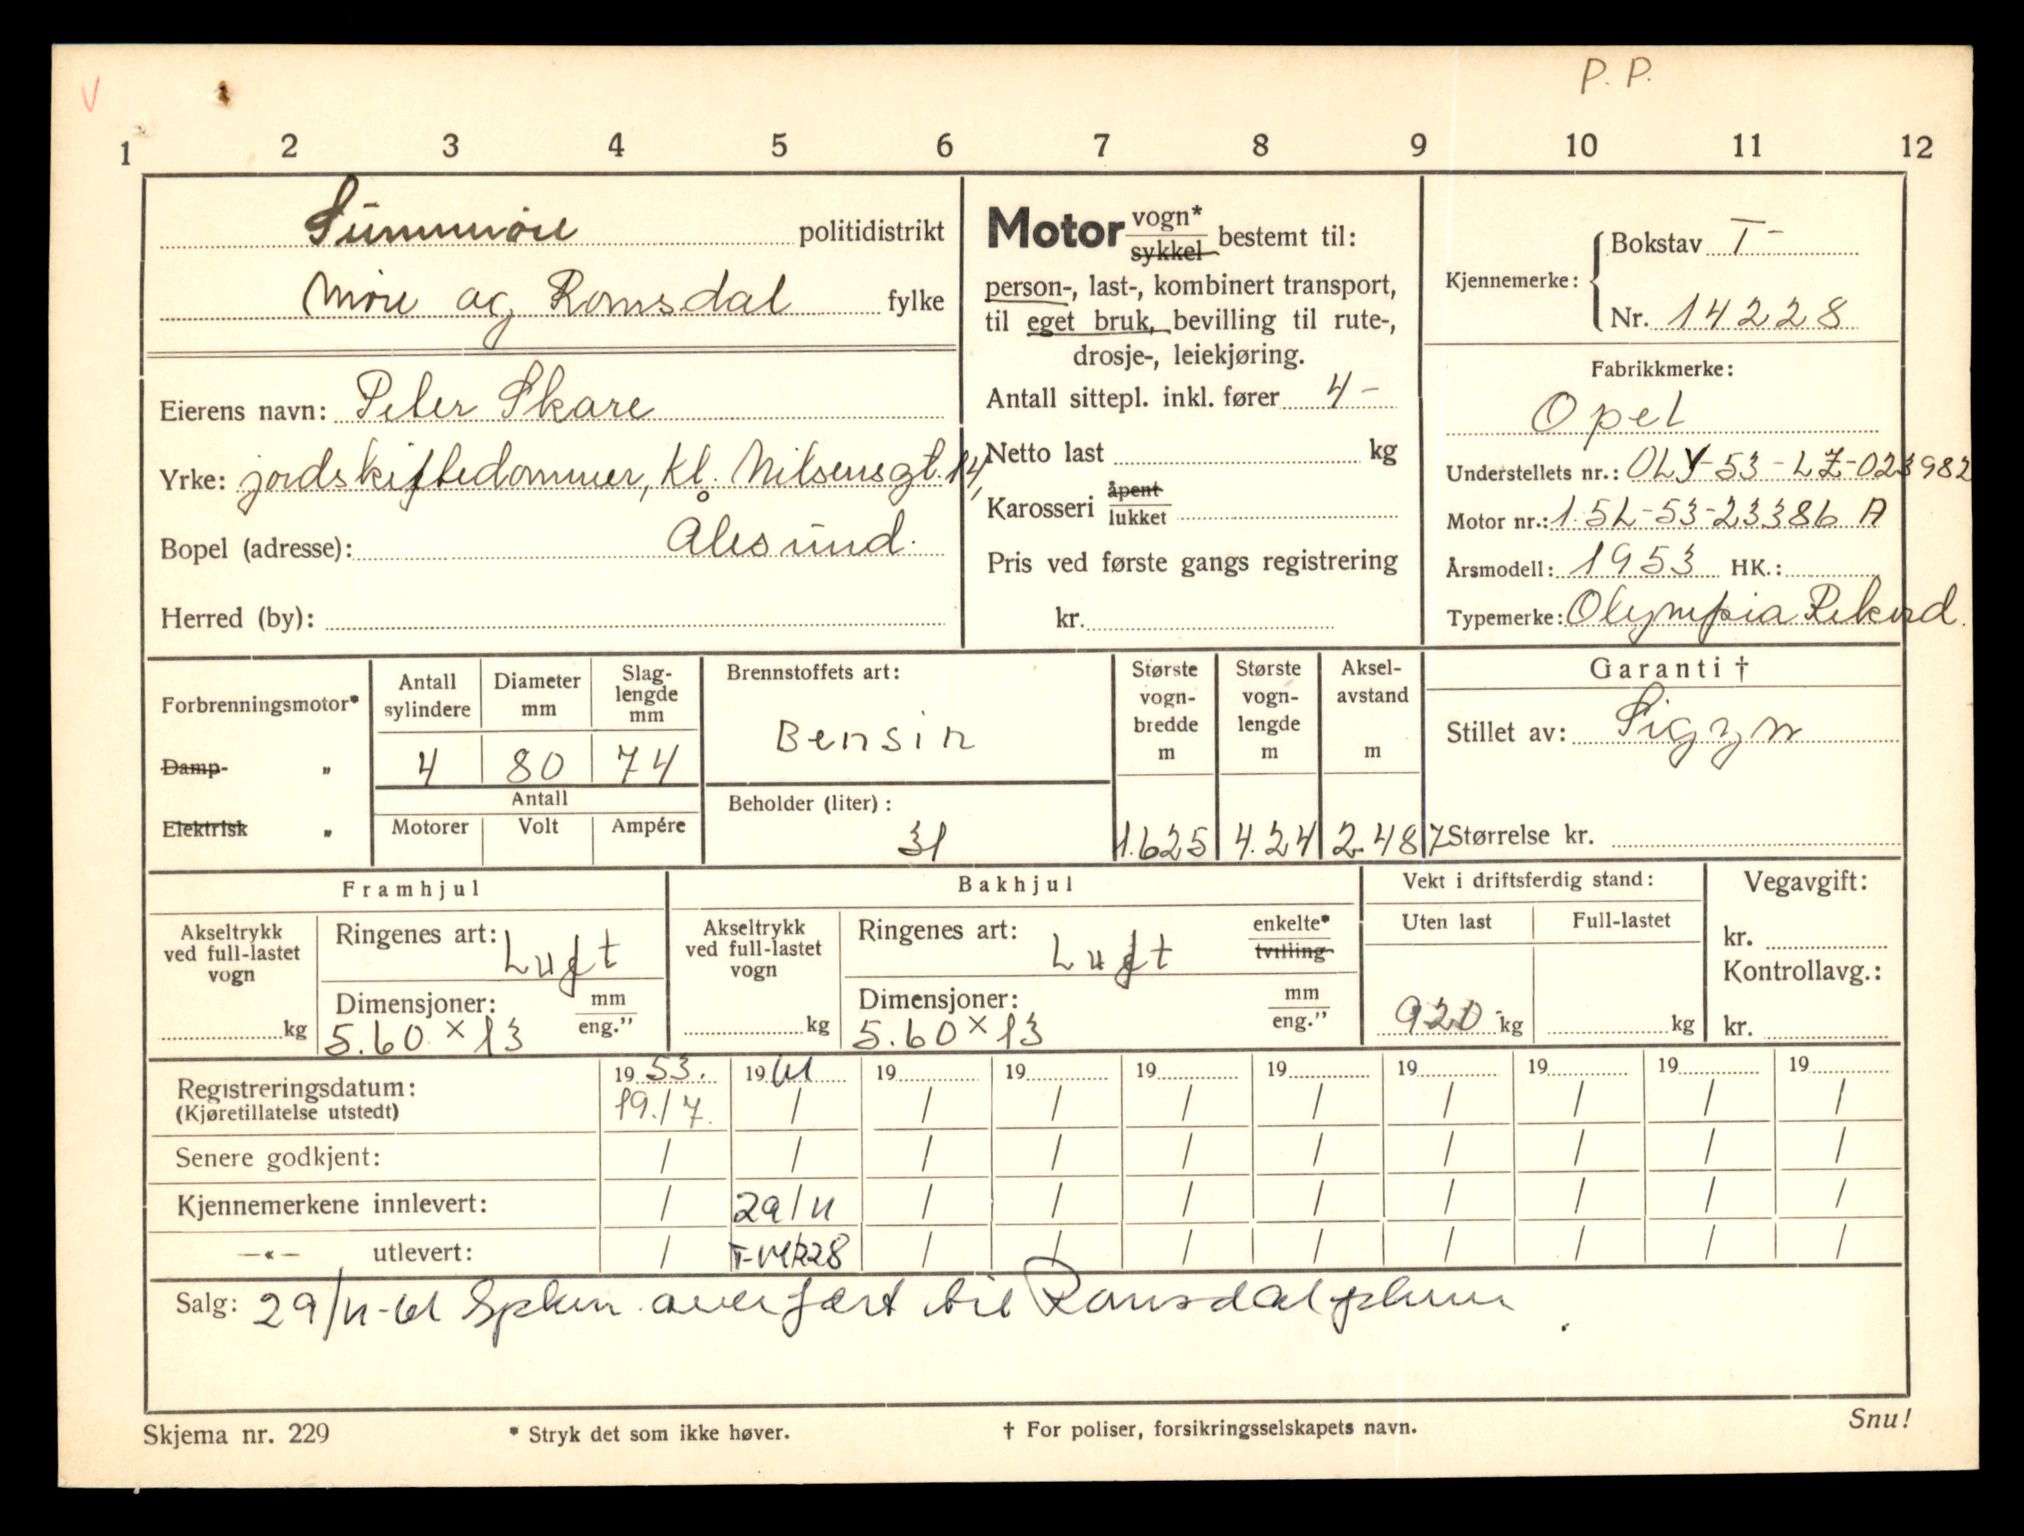 V
P. P.
1 2 3 4 5 6 7 8 9 10 11 12
Sunnmøre politidistrikt
Møre og Romsdal fylke
Eierens navn: Peter Skare
Yrke: jordskiftedommer, Kl. Nilsensgt. 14,
Bopel (adresse): Ålesund.
Herred (by):
Motor vogn* sykkel bestemt til:
person-, last-, kombinert transport,
til eget bruk, bevilling til rute-,
drosje-, leiekjøring.
Antall sittepl. inkl. fører 4-
Netto last kg
Karosseri åpent lukket
Pris ved første gangs registrering
kr.
Kjennemerke: Bokstav T-
Nr. 14228
Fabrikkmerke:
Opel
Understellets nr.: OLY-53-LZ-023982
Motor nr.: 1.5L-53-23386 A
Årsmodell: 1953 HK.:
Typemerke: Olympia Rekord.
Forbrenningsmotor*
Damp- "
Elektrisk "
Antall sylindere
Diameter mm
Slaglengde mm
4 80 74
Antall
Motorer Volt Ampére
Brennstoffets art:
Bensin
Beholder (liter):
31
Største vognbredde m
Største vognlengde m
Akselavstand m
1.625 4.24 2.487
Garanti †
Stillet av: Sigyn
Størrelse kr.
Framhjul
Akseltrykk ved full-lastet vogn
kg
Ringenes art: Luft
Dimensjoner: mm eng."
5.60 x 13
Bakhjul
Akseltrykk ved full-lastet vogn
kg
Ringenes art: Luft enkelte* tvilling
Dimensjoner: mm eng."
5.60 x 13
Vekt i driftsferdig stand:
Uten last Full-lastet
920 kg kg
Vegavgift:
kr.
Kontrollavg.:
kr.
19 53. 19 61 19 19 19 19 19 19 19 19
Registreringsdatum: 19./7. / / / / / / / / /
(Kjøretillatelse utstedt)
Senere godkjent: / / / / / / / / / /
Kjennemerkene innlevert: / 29/11 / / / / / / / /
—«— utlevert: / T-14228 / / / / / / / /
Salg: 29/11-61 Spkm. overført til Romsdal pkmr.
Skjema nr. 229
* Stryk det som ikke høver.
† For poliser, forsikringsselskapets navn.
Snu!